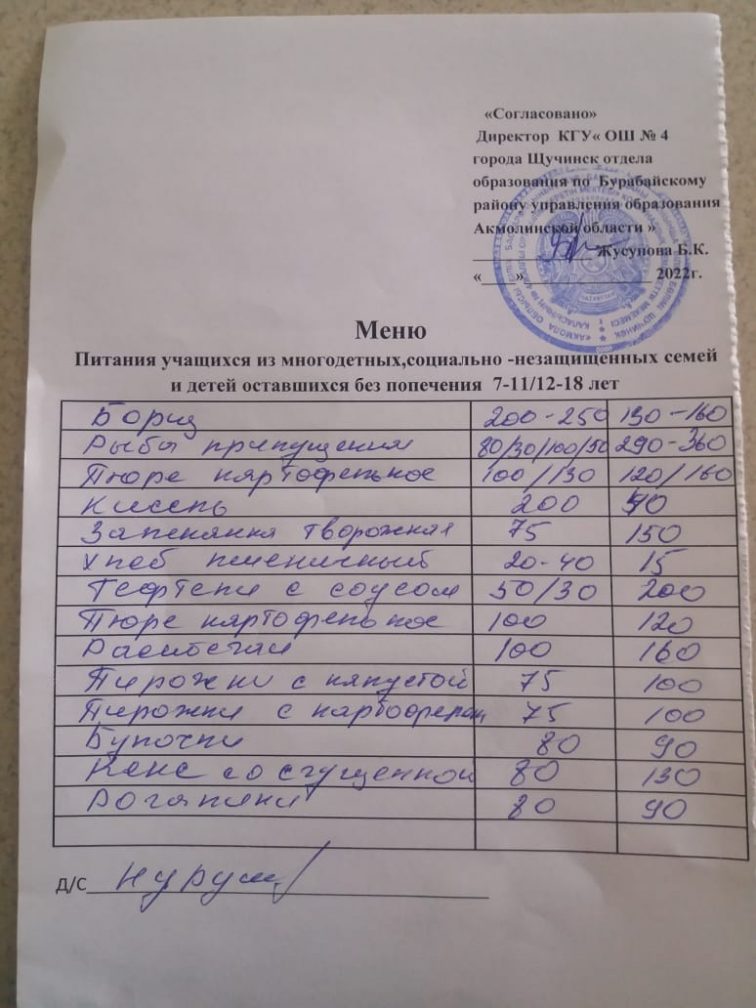 «Согласовано»
Директор КГУ« ОШ № 4
города Щучинск отдела
образования по Бурабайскому
району управления образования
Акмолинской области »
____________ Жусупова Б.К.
«____»____________ 2022г.
Меню
Питания учащихся из многодетных,социально -незащищенных семей
и детей оставшихся без попечения 7-11/12-18 лет
Борщ 200-250 130-160
Рыбы припущения 80/30/100/50 290-360
Пюре картофельное 100/130 120/160
Кисель 200 90
Запеканка творожная 75 150
Хлеб пшеничный 20-40 15
Тефтели с соусом 50/30 200
Пюре картофельное 100 120
100 160
Пирожки с капустой 75 100
Пирожки с картофелем 75 100
Булочки 80 90
Кекс со сгущенной 80 130
Рогалики 80 90
Д/С